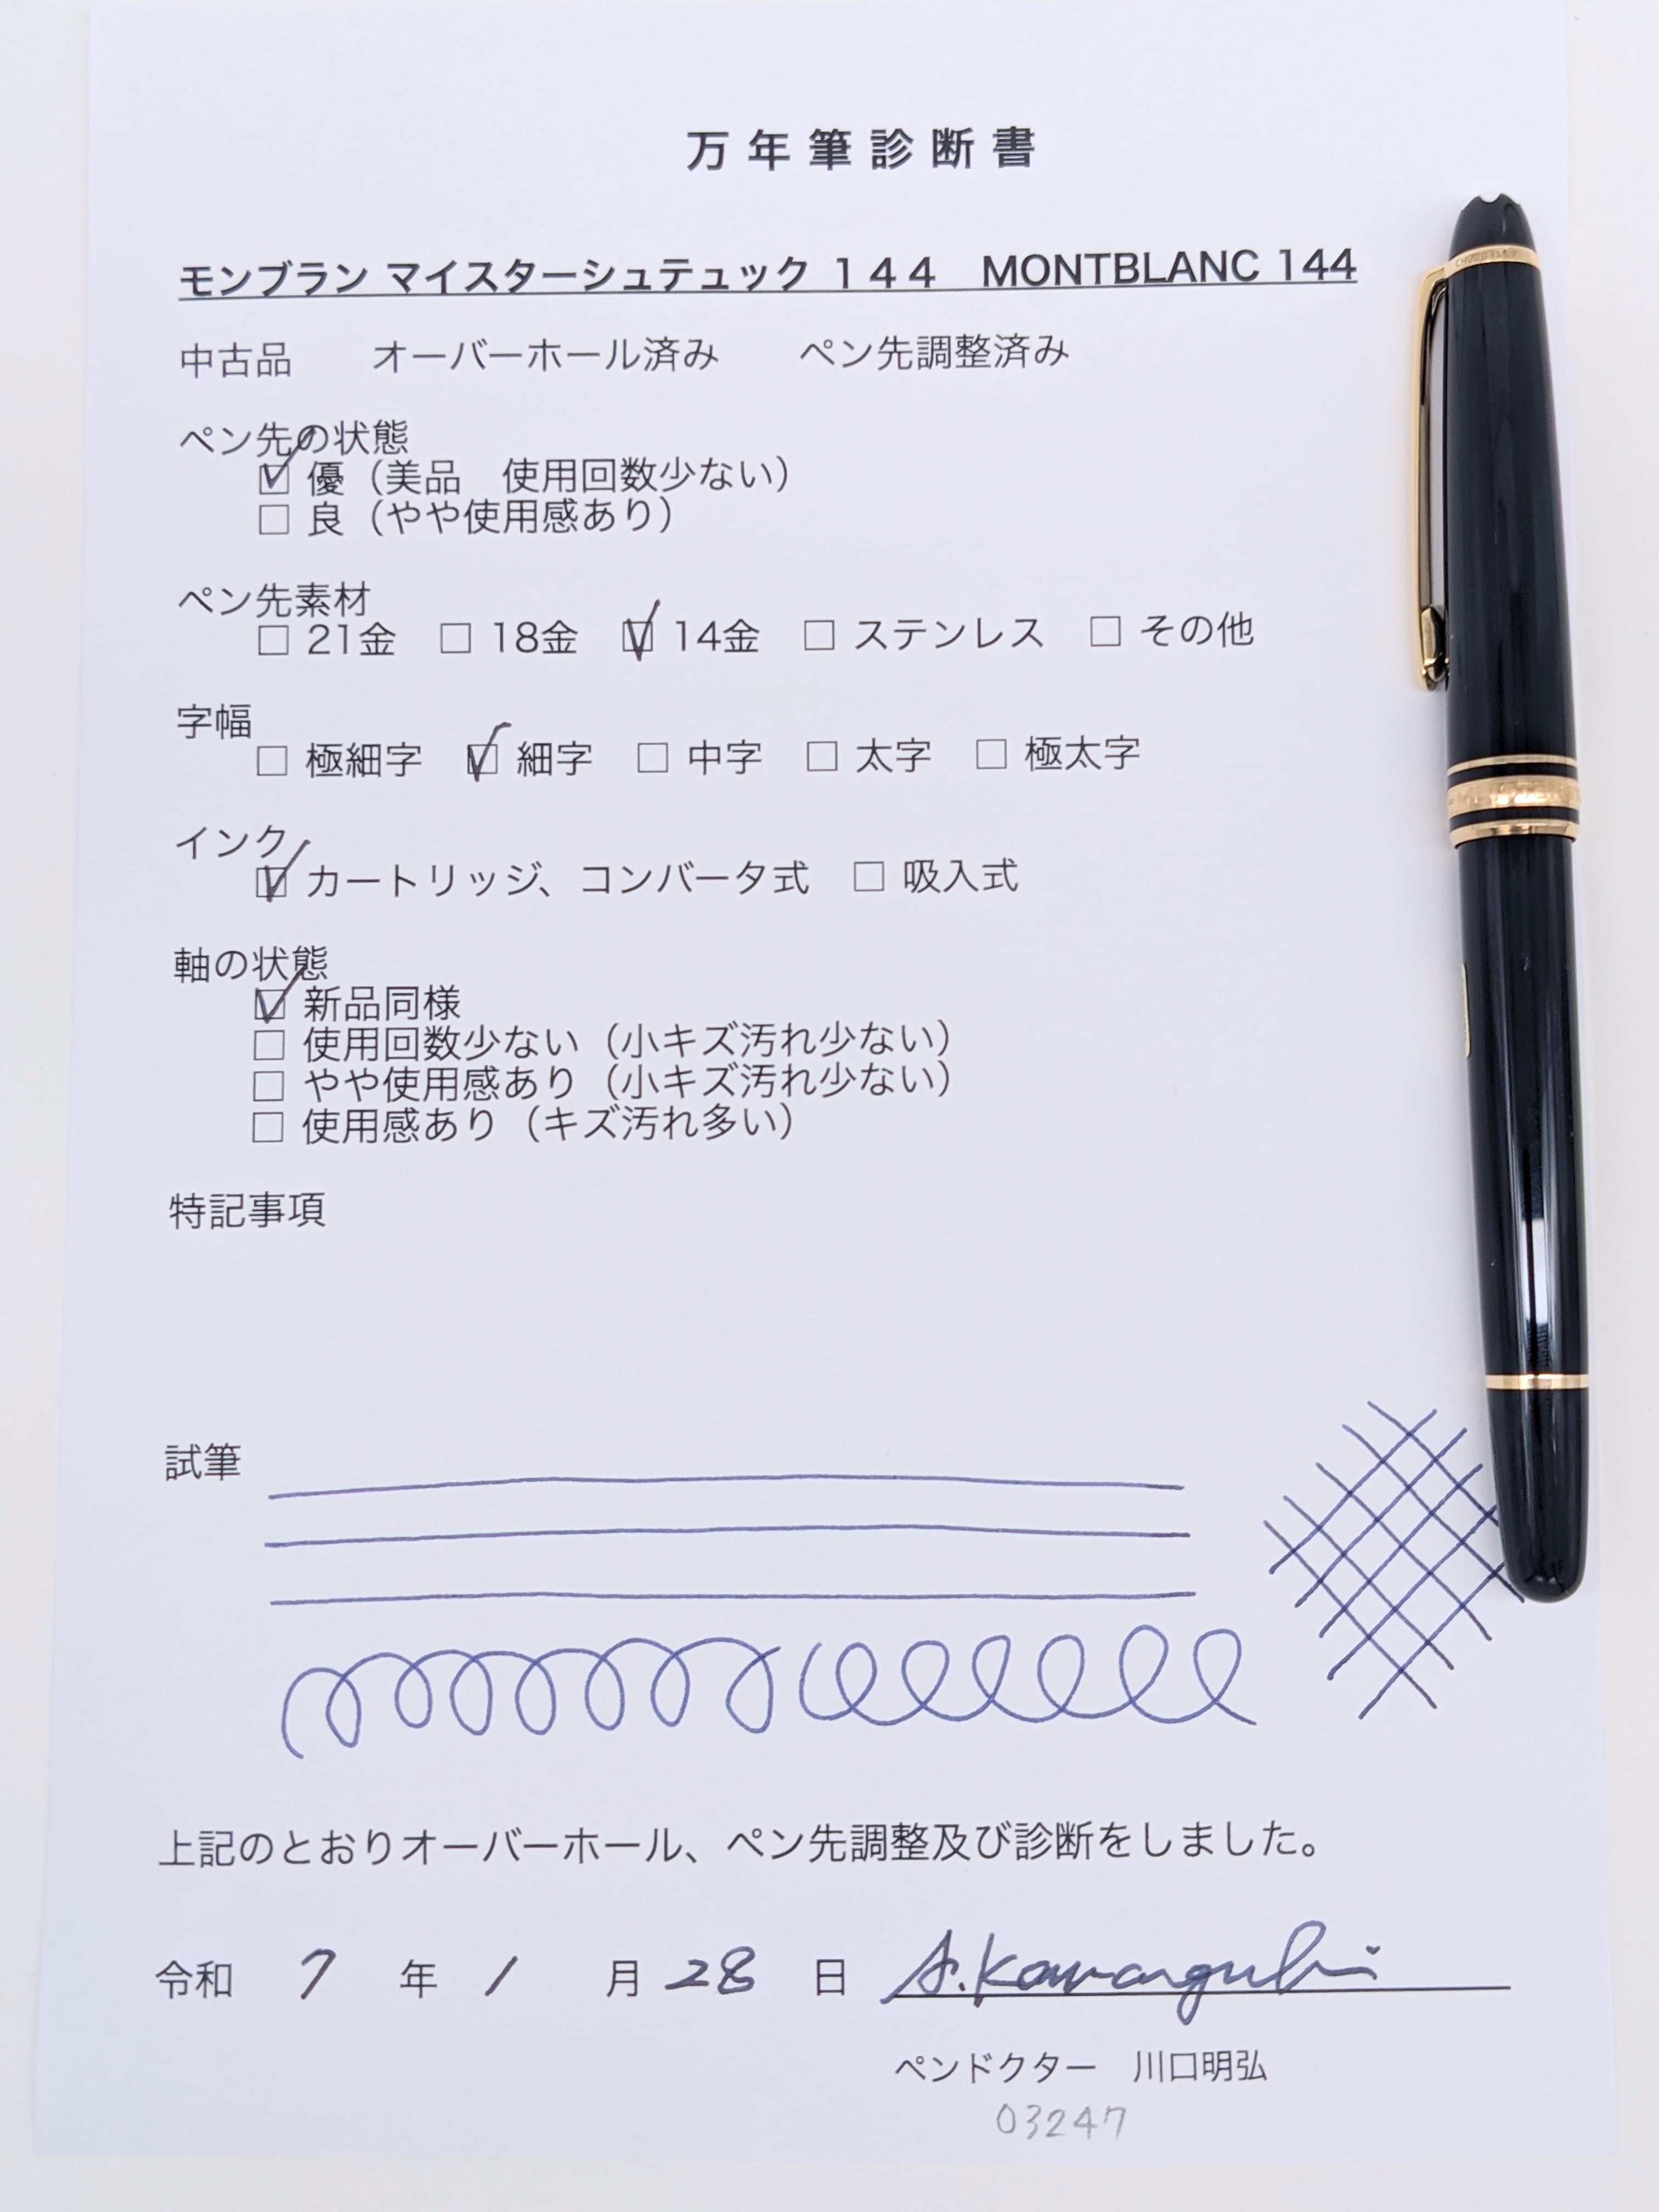 万年筆診断書
モンブラン マイスターシュテュック １４４　MONTBLANC 144
中古品　　オーバーホール済み　　ペン先調整済み
ペン先の状態
☑ 優（美品　使用回数少ない）
□ 良（やや使用感あり）
ペン先素材
□ 21金　□ 18金　☑ 14金　□ ステンレス　□ その他
字幅
□ 極細字　☑ 細字　□ 中字　□ 太字　□ 極太字
インク
☑ カートリッジ、コンバータ式　□ 吸入式
軸の状態
☑ 新品同様
□ 使用回数少ない（小キズ汚れ少ない）
□ やや使用感あり（小キズ汚れ少ない）
□ 使用感あり（キズ汚れ多い）
特記事項
試筆
上記のとおりオーバーホール、ペン先調整及び診断をしました。
令和　7　年　1　月　28　日　A.Kawaguchi
ペンドクター　川口明弘
03247